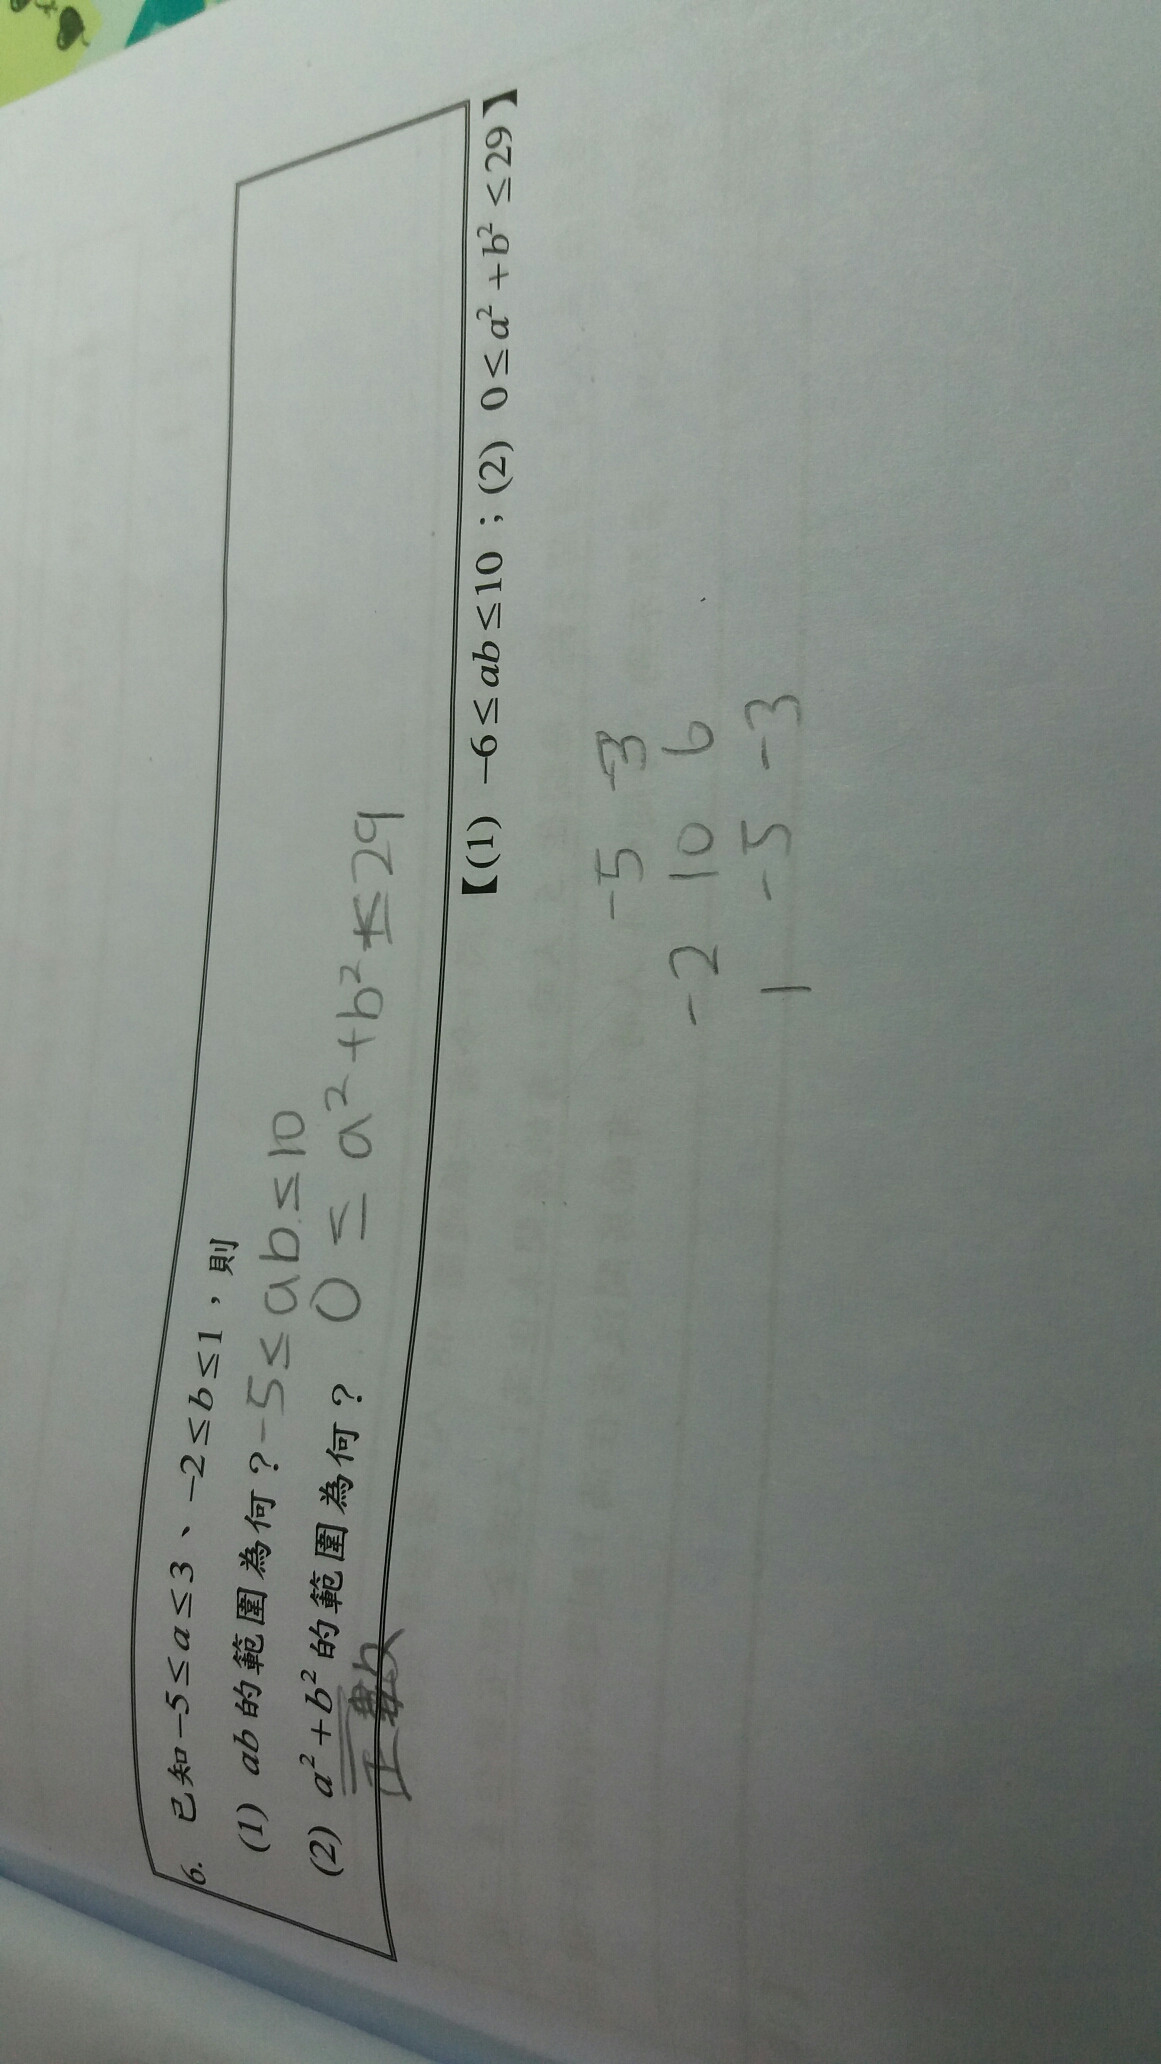 6. 已知 −5≤a≤3、−2≤b≤1，則
(1) ab 的範圍為何？ -5≤ab≤10
(2) a²+b² 的範圍為何？ 0≤a²+b²≤29
正數
【(1) −6≤ab≤10；(2) 0≤a²+b²≤29】
-5 -3
-2 10 6
1 -5 -3